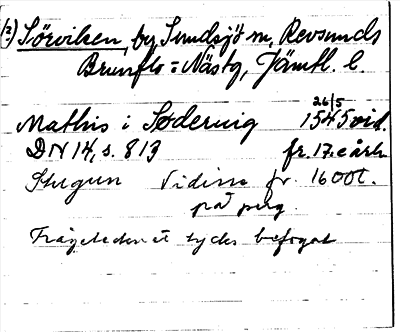 (?) Sörviken, by Sundsjö sn, Revsunds
Brunflo = Näs tg, Jämtl. l.
26/5
Mathis i Søderuig 1545 vid.
DN 14, s. 813 fr. 17. e årh.
Stugun Vidim fr. 1600t.
på perg.
Frågetecknet tycks befogat